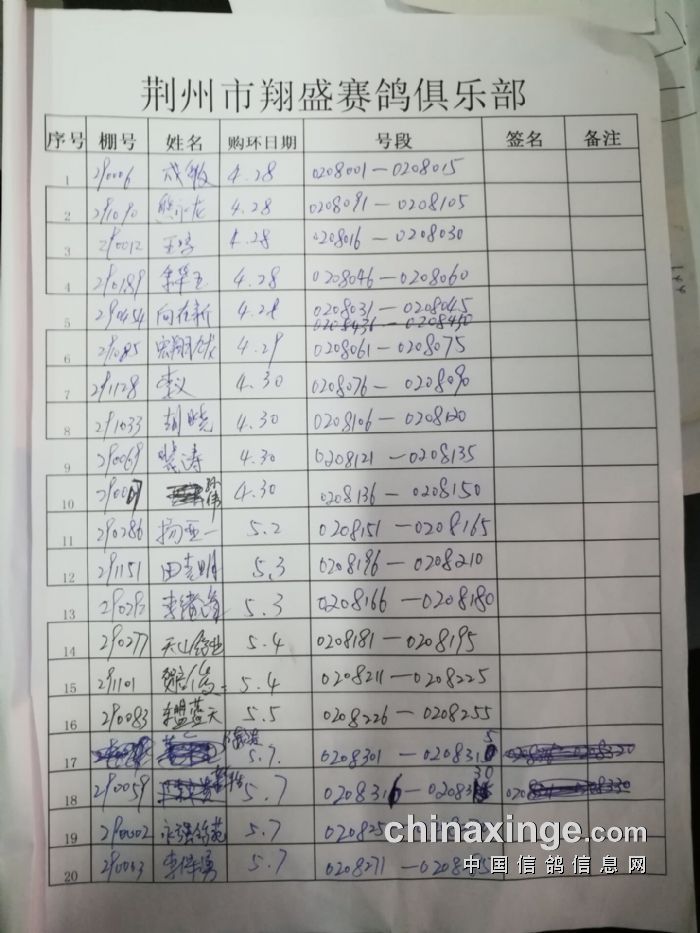 荆州市翔盛赛鸽俱乐部
序号 棚号 姓名 购环日期 号段 签名 备注
1 290006 成敏 4.28 0208001—0208015
2 291090 熊永龙 4.28 0208091—0208105
3 290012 4.28 0208016—0208030
4 290189 4.28 0208046—0208060
5 290454 向在新 4.28 0208031—0208045
0208436—0208450
6 291085 4.29 0208061—0208075
7 291128 李义 4.30 0208076—0208090
8 291033 胡晓 4.30 0208106—0208120
9 290069 4.30 0208121—0208135
10 孙伟 4.30 0208136—0208150
11 290286 杨亚一 5.2 0208151—0208165
12 291151 田克明 5.3 0208196—0208210
13 290292 5.3 0208166—0208180
14 290277 天山鸽业 5.4 0208181—0208195
15 291101 5.4 0208211—0208225
16 290083 东盟蓝天 5.5 0208226—0208255
17 5.7. 0208301—0208315
18 290059 5.7 0208316—0208330
19 290002 永强鸽苑 5.7
20 290003 5.7 0208271—
chinaxinge.com
中国信鸽信息网